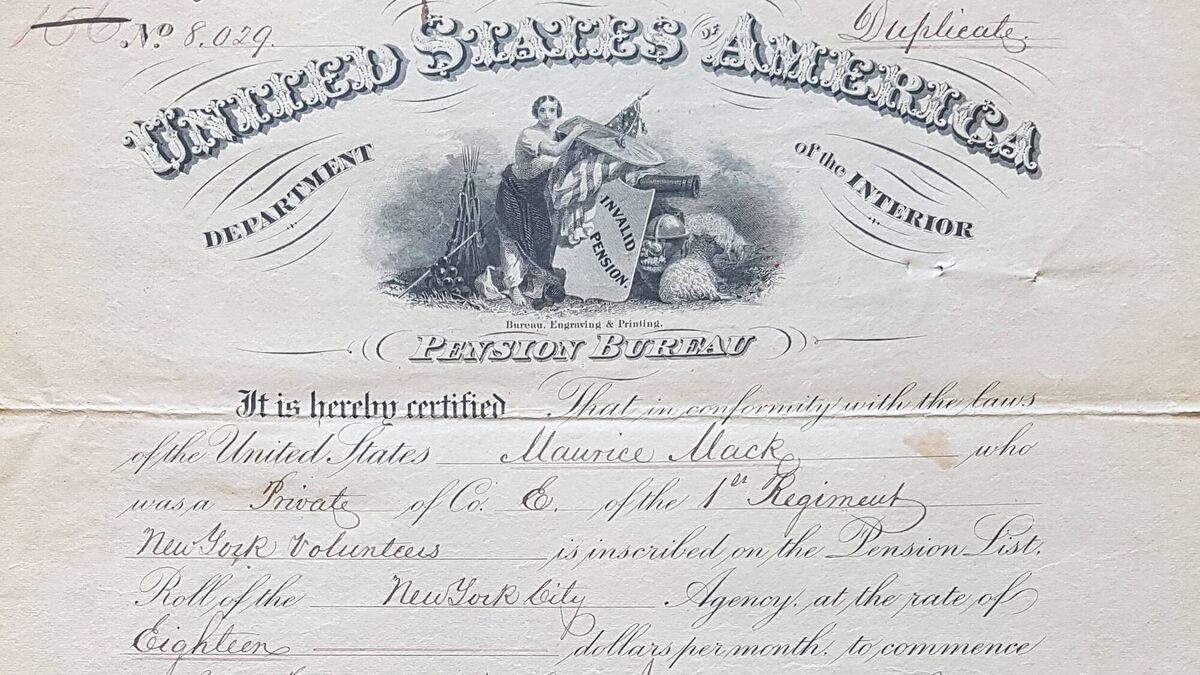 No 8.029. Duplicate.
UNITED STATES OF AMERICA
DEPARTMENT of the INTERIOR
INVALID
PENSION.
Bureau, Engraving & Printing.
PENSION BUREAU
It is hereby certified That in conformity with the laws
of the United States Maurice Mack who
was a Private of Co. E. of the 1st Regiment
New York Volunteers is inscribed on the Pension List,
Roll of the New York City Agency, at the rate of
Eighteen dollars per month, to commence